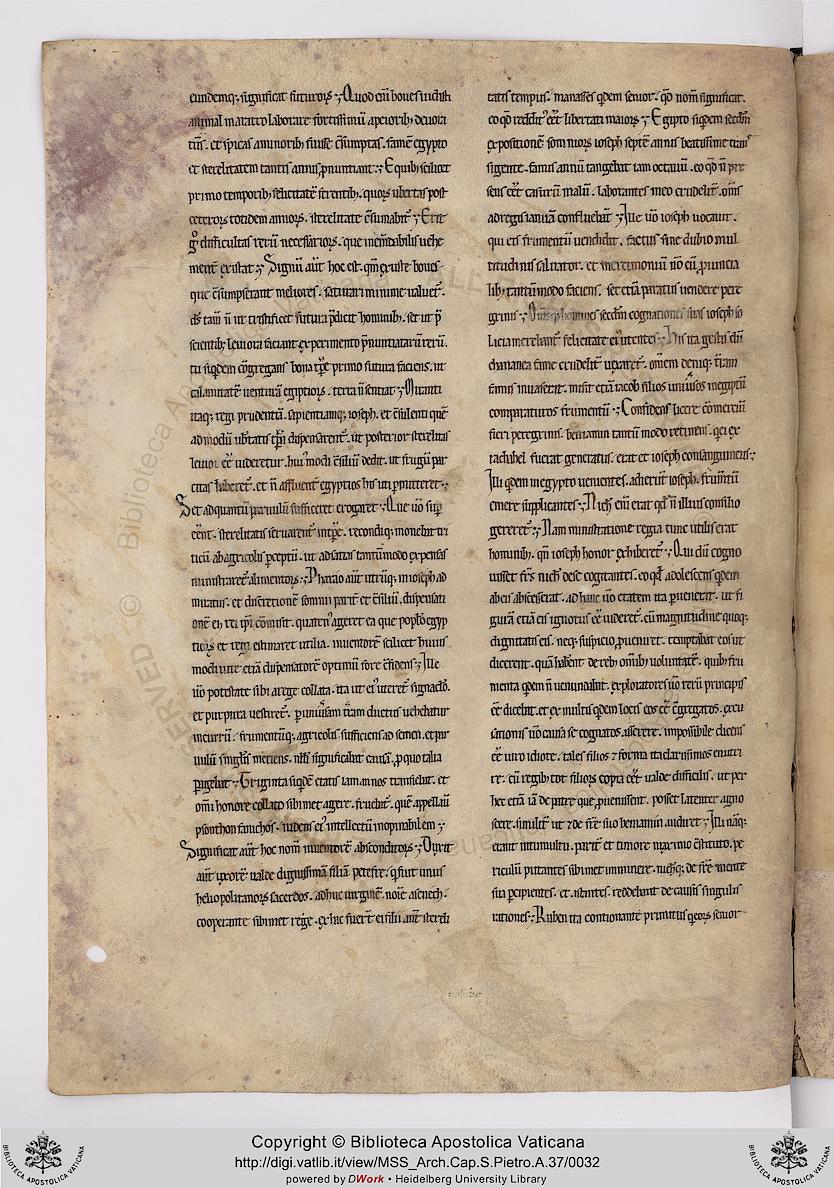 eundemq; significat futuroꝝ. Quod eni boues uidisti
animal in aratro laborare fortissimū a peiorib; deuora
tū. et spicas a minorib; fuisse ꝯsumptas. famē egypto
et sterelitatem tantis annis pnuntiant. E quib; scilicet
primo temporib; felicitatē ferentib;. quoꝝ ubertas post
ceteroꝝ totidem annoꝝ. sterelitate ꝯsumabit. Erit
difficultas rerū necessarioꝝ. que
ment existat. Signū aūt hoc est. qm̄ boues
que ꝯsumpserant meliores. saturari minime ualuer̄.
ds tam̄ n̄ ut tristificet futura p̄dicit hominib;. set ut p̄
scientib; leuiora faciant experimento p̄nuntiatarū rerū.
tu siqdem ꝯgregans bona primo futura faciens. ut
calamitatē uenturā egiptioꝝ. terra n̄ sentiat. Miranti
itaq; regi prudentiā. sapientiamq; ioseph. et ꝯsulenti quē
admodū dispensarent. ut posterior sterelitas
leuior ēē uideretur. ꝯsiliū dedit. ut frugū par
citas haberet. et n̄ affluent egyptios his uti pmitteret.
Set ad quantū paruulū sufficeret erogaret. Que uo sup
eent. sterelitatis seruarent recondiq; monebat tri
ticū ab agricolis pceptū. ut ad satias tantūmodo expensas
ministraret alimentoꝝ. Pharao aūt utrūq; in ioseph ad
miratus. et discretionē somnii pariter et ꝯsiliū. dispensati
onē ei rei ipi ꝯmisit. quaten ageret ea que poplo egyp
tioꝝ et regi estimaret utilia. inuentorē scilicet huius
modi uite etiā dispensatorē optimū fore ꝯfidens. Ille
uo potestate sibi a rege collata. ita ut ei uteret signaclo.
et purpura uestiret. p uniūsam tram ductus uehebatur
in currū. frumentūq; agricolis sufficiens ad semen. et par
uulū singlis metiens. significabat causā. p quo talia
pagebat. Triginta siqdē etatis iam annos transiebat. et
omi honore collato sibimet a rege. fruebat. quē appellauit
psonthon fanuchos. uidens ei intellectū inopinabilem.
Significat aūt hoc nom̄ inuentorē absconditoꝝ. Duxit
aūt uxorē ualde dignissimā filiā petefre. q fuit unus
heliopolitanoꝝ sacerdos. adhuc uirginē. noīe asenech.
cooperante sibimet rege. ex hac fuer̄t ei filii ante sterili
tatis tempus. manasses qdem senior. qd nom̄ significat.
eo qd reddit eet libertati maioris. Egipto siqdem scdm
expositionē somnioꝝ ioseph septē annis beatissime trans
igente. famis annū tangebat iam octauū. eo qd n̄ pre
scius eet casurū malū. laborantes in eo crudelit. omīs
ad regis ianuā confluebat. Ille uo ioseph uocauit.
qui eis frumentū uendidit. factus sine dubio mul
titudinis saluator. et mercimoniū n̄ eū puincia
lib; tantūmodo faciens. set etiā paratus uendere pere
grinis. homines scdm cognationes suas ioseph so
lacia merebant felicitate ei utentes. His ita gestis cū
chananea fame crudelit uexaret. omem deniq; tram
famis inuaserat. misit etiā iacob filios in egiptū
comparaturos frumentū. Confidens licere ꝯmerciū
fieri peregrinis. beniamin tantūmodo retinens. qi ex
rachel fuerat generatus. erat et ioseph consanguineus.
Illi qdem in egypto uenientes. adierūt ioseph. frumtū
emere supplicantes. enī erat qd n̄ illius consilio
gereret. Nam ministratione regia tunc utilis erat
hominib;. qn̄ ioseph honor exhiberet. Qui dū cogno
uisset frs nich desc cogitantes. eo qd adolescens qdem
ab eis abscesserat. ad hanc uo etatem ita puenerit. ut fi
gura etiā eis ignotus ee uideret. eū magnitudine quoq;
dignitatis eis. neq; suspicio pueniret. temptabat eos ut
dicerent. quā habent de reb; omib; uoluntatē. quib; fru
menta qdem n̄ uenundabat. exploratores uo rerū principis
ēē dicebat. et ex multis qdem locis eos ēē ꝯgregatos. excu
sationis uo causa se cognatos asserere. impossibile dicens
ēē uiro idiote. tales filios forma tā clarissimos enutri
re. cū regib; tot filioꝝ copia eet ualde difficilis. ut per
hec etiā de patre que puenissent. posset latenter agno
scere. similit ut de fre suo beniamin audiret. Illi naq;
erant in tumultu. parit et timore maximo ꝯstituto. pe
riculū putantes sibimet imminere. nichq; de fre mente
sua pcipientes. et stantes. reddebant de causis singulis
rationes. Ruben ita contionante primitus q eoꝝ senior
Copyright © Biblioteca Apostolica Vaticana
http://digi.vatlib.it/view/MSS_Arch.Cap.S.Pietro.A.37/0032
powered by DWork • Heidelberg University Library